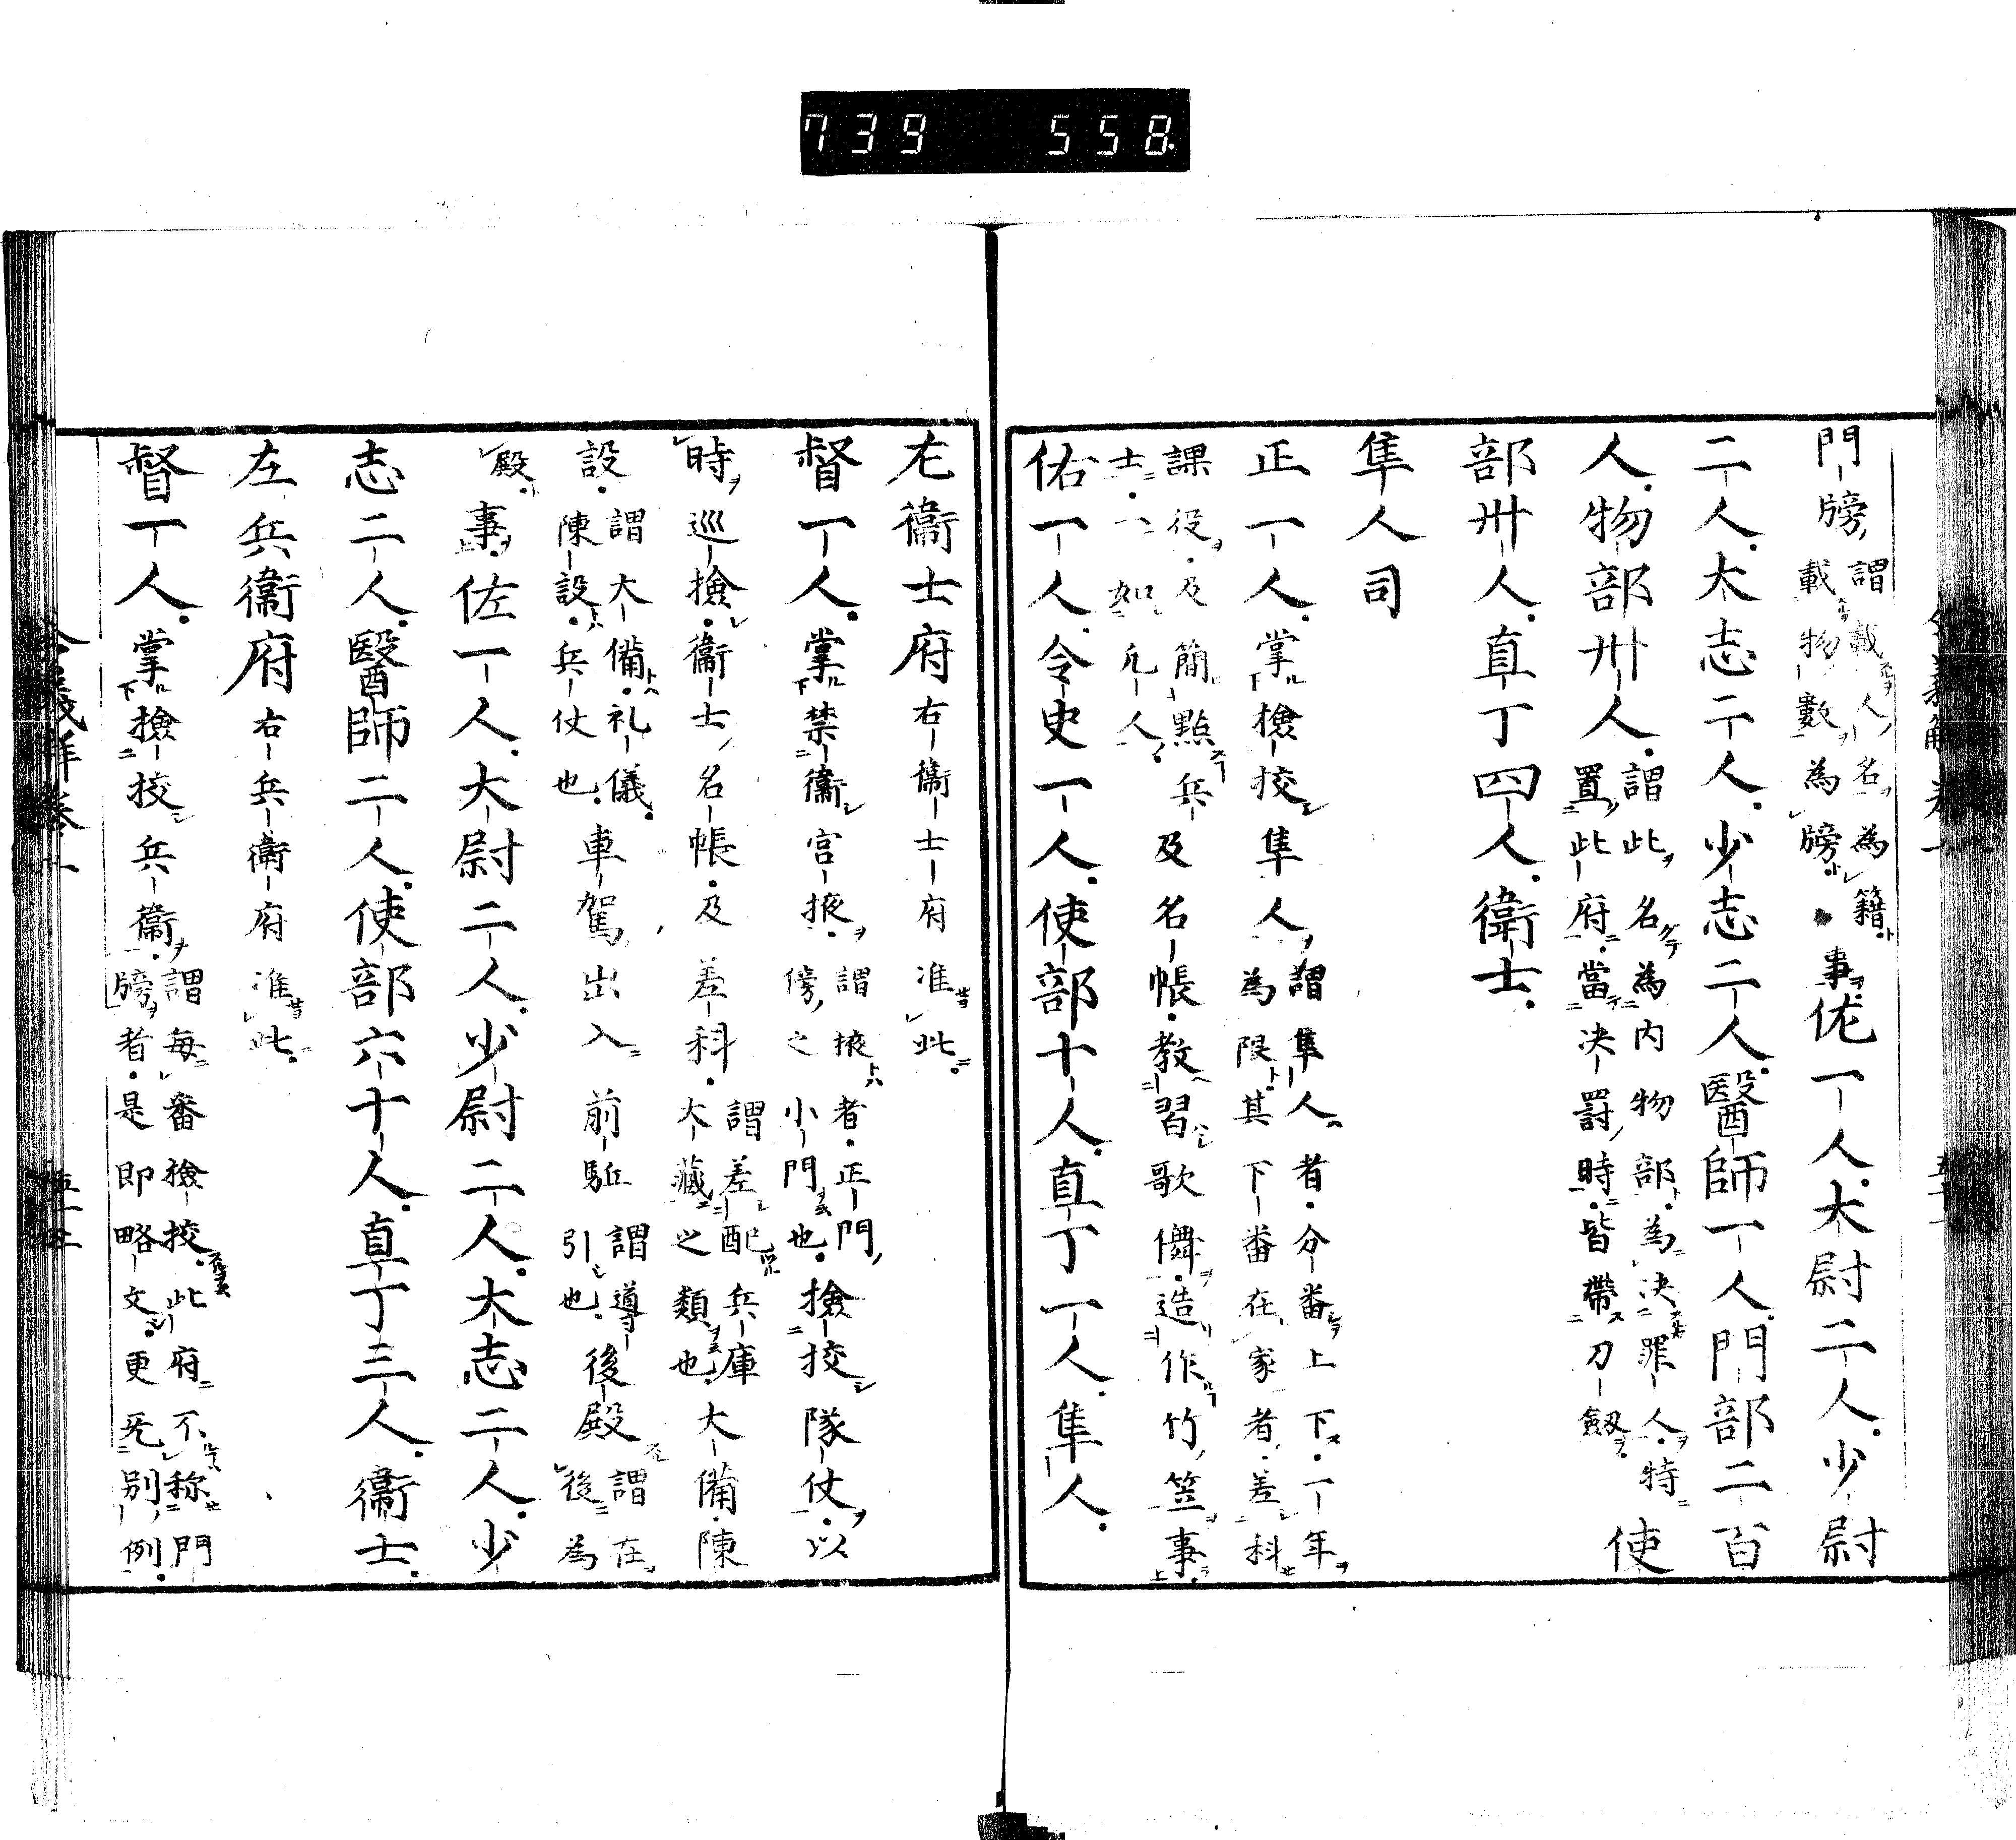 739 558
門牓謂載人名為籍載物數為牓事佐一人大尉二人少尉
二人大志二人少志二人醫師一人門部二百
人物部卅人謂此名為内物部為決罪人特置此府當決罸時皆帶刀劔使
部卅人直丁四人衛士
隼人司
正一人掌撿挍隼人謂隼人者分番上下一年為限其下番在家者差科
課役及簡點兵士一如凢人及名帳教習歌儛造作竹笠事
佑一人令史一人使部十人直丁一人隼人
左衞士府右衞士府准此
督一人掌禁衞宮掖謂掖者正門傍之小門也撿挍隊仗以
時巡撿衞士名帳及差科謂差配兵庫大藏之類也大備陳
設謂大備礼儀陳設兵仗也車駕出入前駈謂導引也後殿謂在後為
殿事佐一人大尉二人少尉二人大志二人少
志二人醫師二人使部六十人直丁三人衞士
左兵衞府右兵衞府准此
督一人掌撿挍兵衞謂每番撿挍此府不称門牓者是即略文更无別例